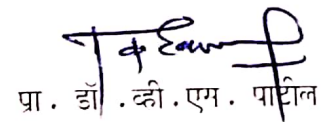 प्रा. डॉ. व्ही. एम. पाटील